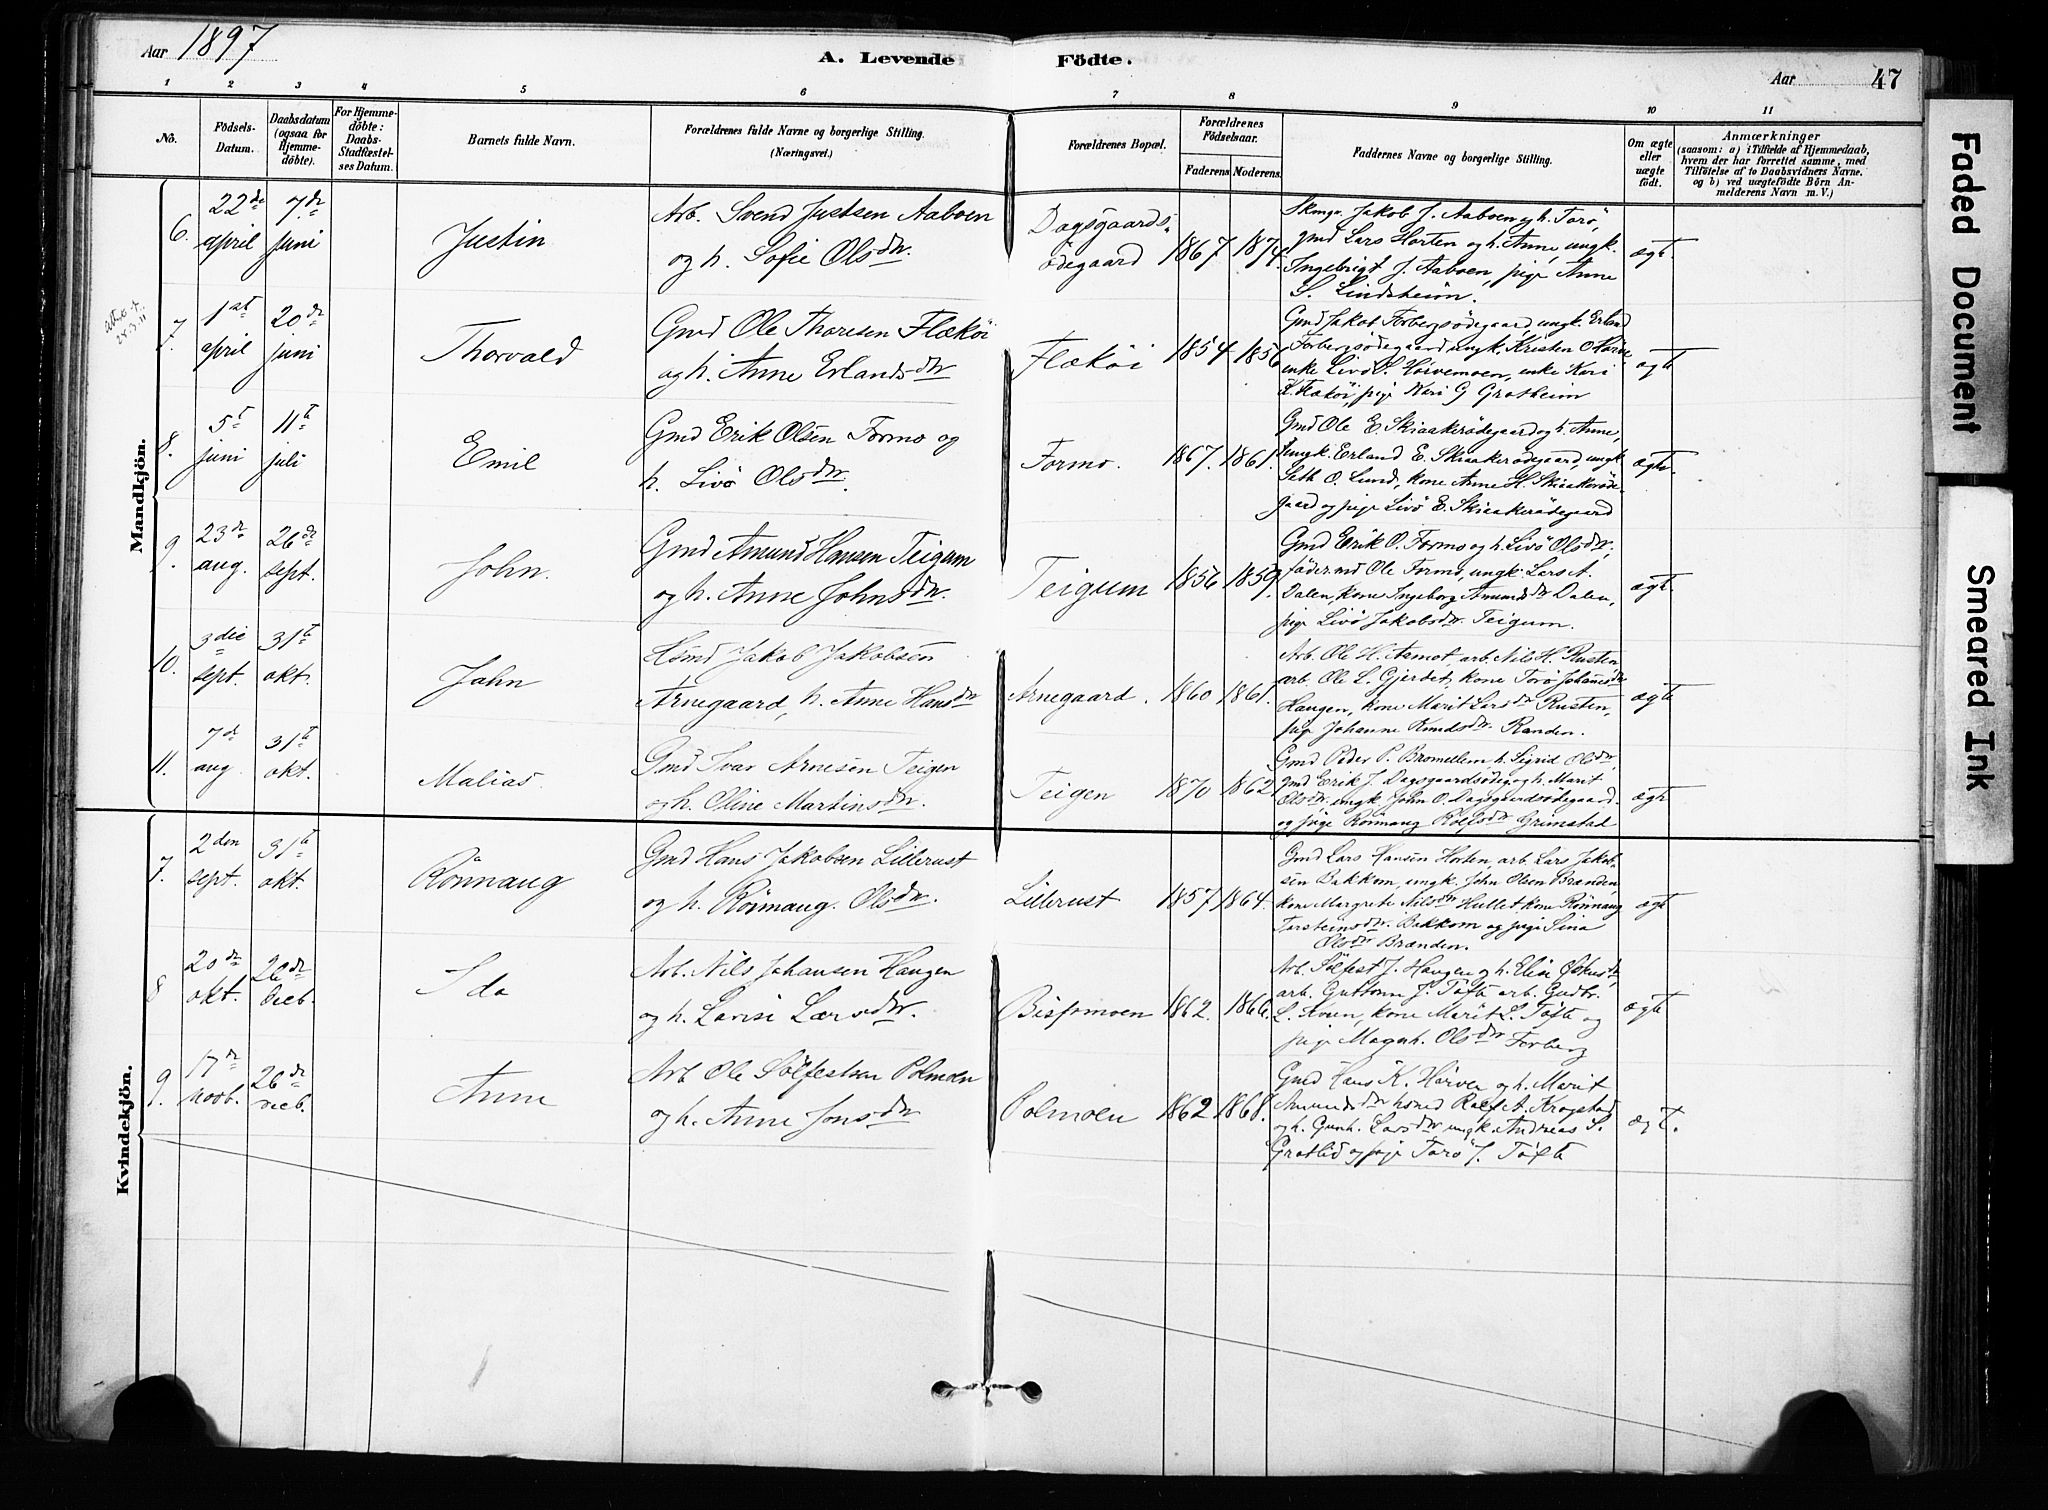 Aar 1897
A. Levende Födte.
Aar 47
1 2 3 4 5 6 7 8 9 10 11
No.
Födsels-Datum.
Daabsdatum (ogsaa for Hjemme-döbte).
For Hjemme-döbte: Daabs-Stadfæstel-ses Datum.
Barnets fulde Navn.
Forældrenes fulde Navne og borgerlige Stilling.
(Næringsvei.)
Forældrenes Bopæl.
Forældrenes Födselsaar.
Faderens Moderens.
Faddernes Navne og borgerlige Stilling.
Om ægte eller uægte födt.
Anmærkninger
(saasom: a) i Tilfælde af Hjemmedaab,
hvem der har forrettet samme, med
Tilföielse af to Daabsvidners Navne.
og b) ved uægtefödte Börn An-
melderens Navn m. V.)
Mandkjön.
6. 22de april
7de juni
Justin
Arb. Svend Justsen Aaboen
og h. Sofie Olsdtr.
Dagsgaards-
ödegaard
1867 1874.
Skmgr. Jakob J. Aaboen og h. Torö,
gmd Lars Horten og h. Anne, ungk.
Ingebrigt J. Aaboen, pige Anne
S. Lindsheim.
ægt.
7. 1st april
20de juni
Thorvald
Gmd Ole Thoresen Flæköi
og h. Anne Erlandsdtr
Flæköi
1854 1856
Gmd Jakob Forbergsödegaard, ungk. Erland
Forbergsödegaard ungk. Kristen O Hörve
enke Livö S. Hörvemoen, enke Kari
K. Flæköi, pige Kari G Grotheim
ægte
8. 5t juni
11te juli
Emil
Gmd Erik Olsen Formo og
h. Livö Olsdtr.
Formo.
1867. 1861.
Gmd Ole E. Skiaakerödegaard og h. Anne,
ungk. Erland E. Skiaakerödegaard, ungk
Seth O. Lund, kone Anne H. Skiaakeröde-
gaard og pige Livö E. Skiaakerödegaard
ægte.
9. 23de aug.
26de sept.
John.
Gmd Amund Hansen Teigum
og h. Anne Johnsdtr.
Teigum
1856 1859.
Gmd Erik O. Formo og h. Livö Olsdtr,
föder md Ole Formo, ungk. Lars A.
Dalen, kone Ingeborg Amundsdtr Dalen,
pige Livö Jakobsdtr. Teigum.
ægt.
10. 3die sept.
31te okt.
John
Hsmd Jakob Jakobsen
Arnegaard, h. Anne Hansdtr
Arnegaard.
1860 1861.
Arb. Ole H. Aamot, arb. Nils H. Rusten,
arb. Ole L. Gjerdet, kone Torö Johansdtr
Haugen, kone Marit Larsdtr Rusten,
pige Johanne Knudsdtr. Randen.
ægte
11. 7de aug
31te okt.
Malias.
Gmd Ivar Arnesen Teigen
og h. Oline Martinsdtr.
Teigen
1870 1862.
Gmd Peder P. Bromellem, h. Sigrid Olsdtr,
gmd Erik J. Dagsgaardsödeg. og h. Marit
Olsdtr. ungk. John O. Dagsgaardsödegaard.
og pige Rönnaug Rolfsdtr Grimstad
ægte
Kvindekjön.
7. 2den sept.
31te okt.
Rönnaug
Gmd Hans Jakobsen Lillerust
og h. Rönnaug. Olsdtr.
Lillerust
1857 1864.
Gmd Lars Hansen Horten, arb. Lars Jakob-
sen Bakkom, ungk. John Olsen Brænden,
kone Margrete Nilsdtr Hullet, kone Rönnaug
Torsteinsdtr. Bakkom og pige Sina
Olsdtr Brænden.
ægt
8 20de okt.
26de deeb.
Ida
Arb. Nils Johansen Haugen
og h. Larsdtr.
Bispmoen
1862. 1866.
Arb. Sölfest J. Haugen og h. Elise
arb. Guttorm J. Tofte arb. Gudbr.
L. Aven, kone Marit L. Tofte og
pige Magnh. Olsdtr Forberg
ægte
9. 17de novb.
26de deeb.
Anne
Arb Ole Sölfestsen Polmoen
og h. Anne Jonsdtr
Polmoen
1862 1868.
Gmd Hans K. Hörven og h. Marit
Amundsdtr hsmd Rolf A. Krogstad
og h. Gunh. Larsdtr ungk. Andreas S.
Grotlid og pige Torö J. Tofte
ægt.
Faded Document
Smeared Ink